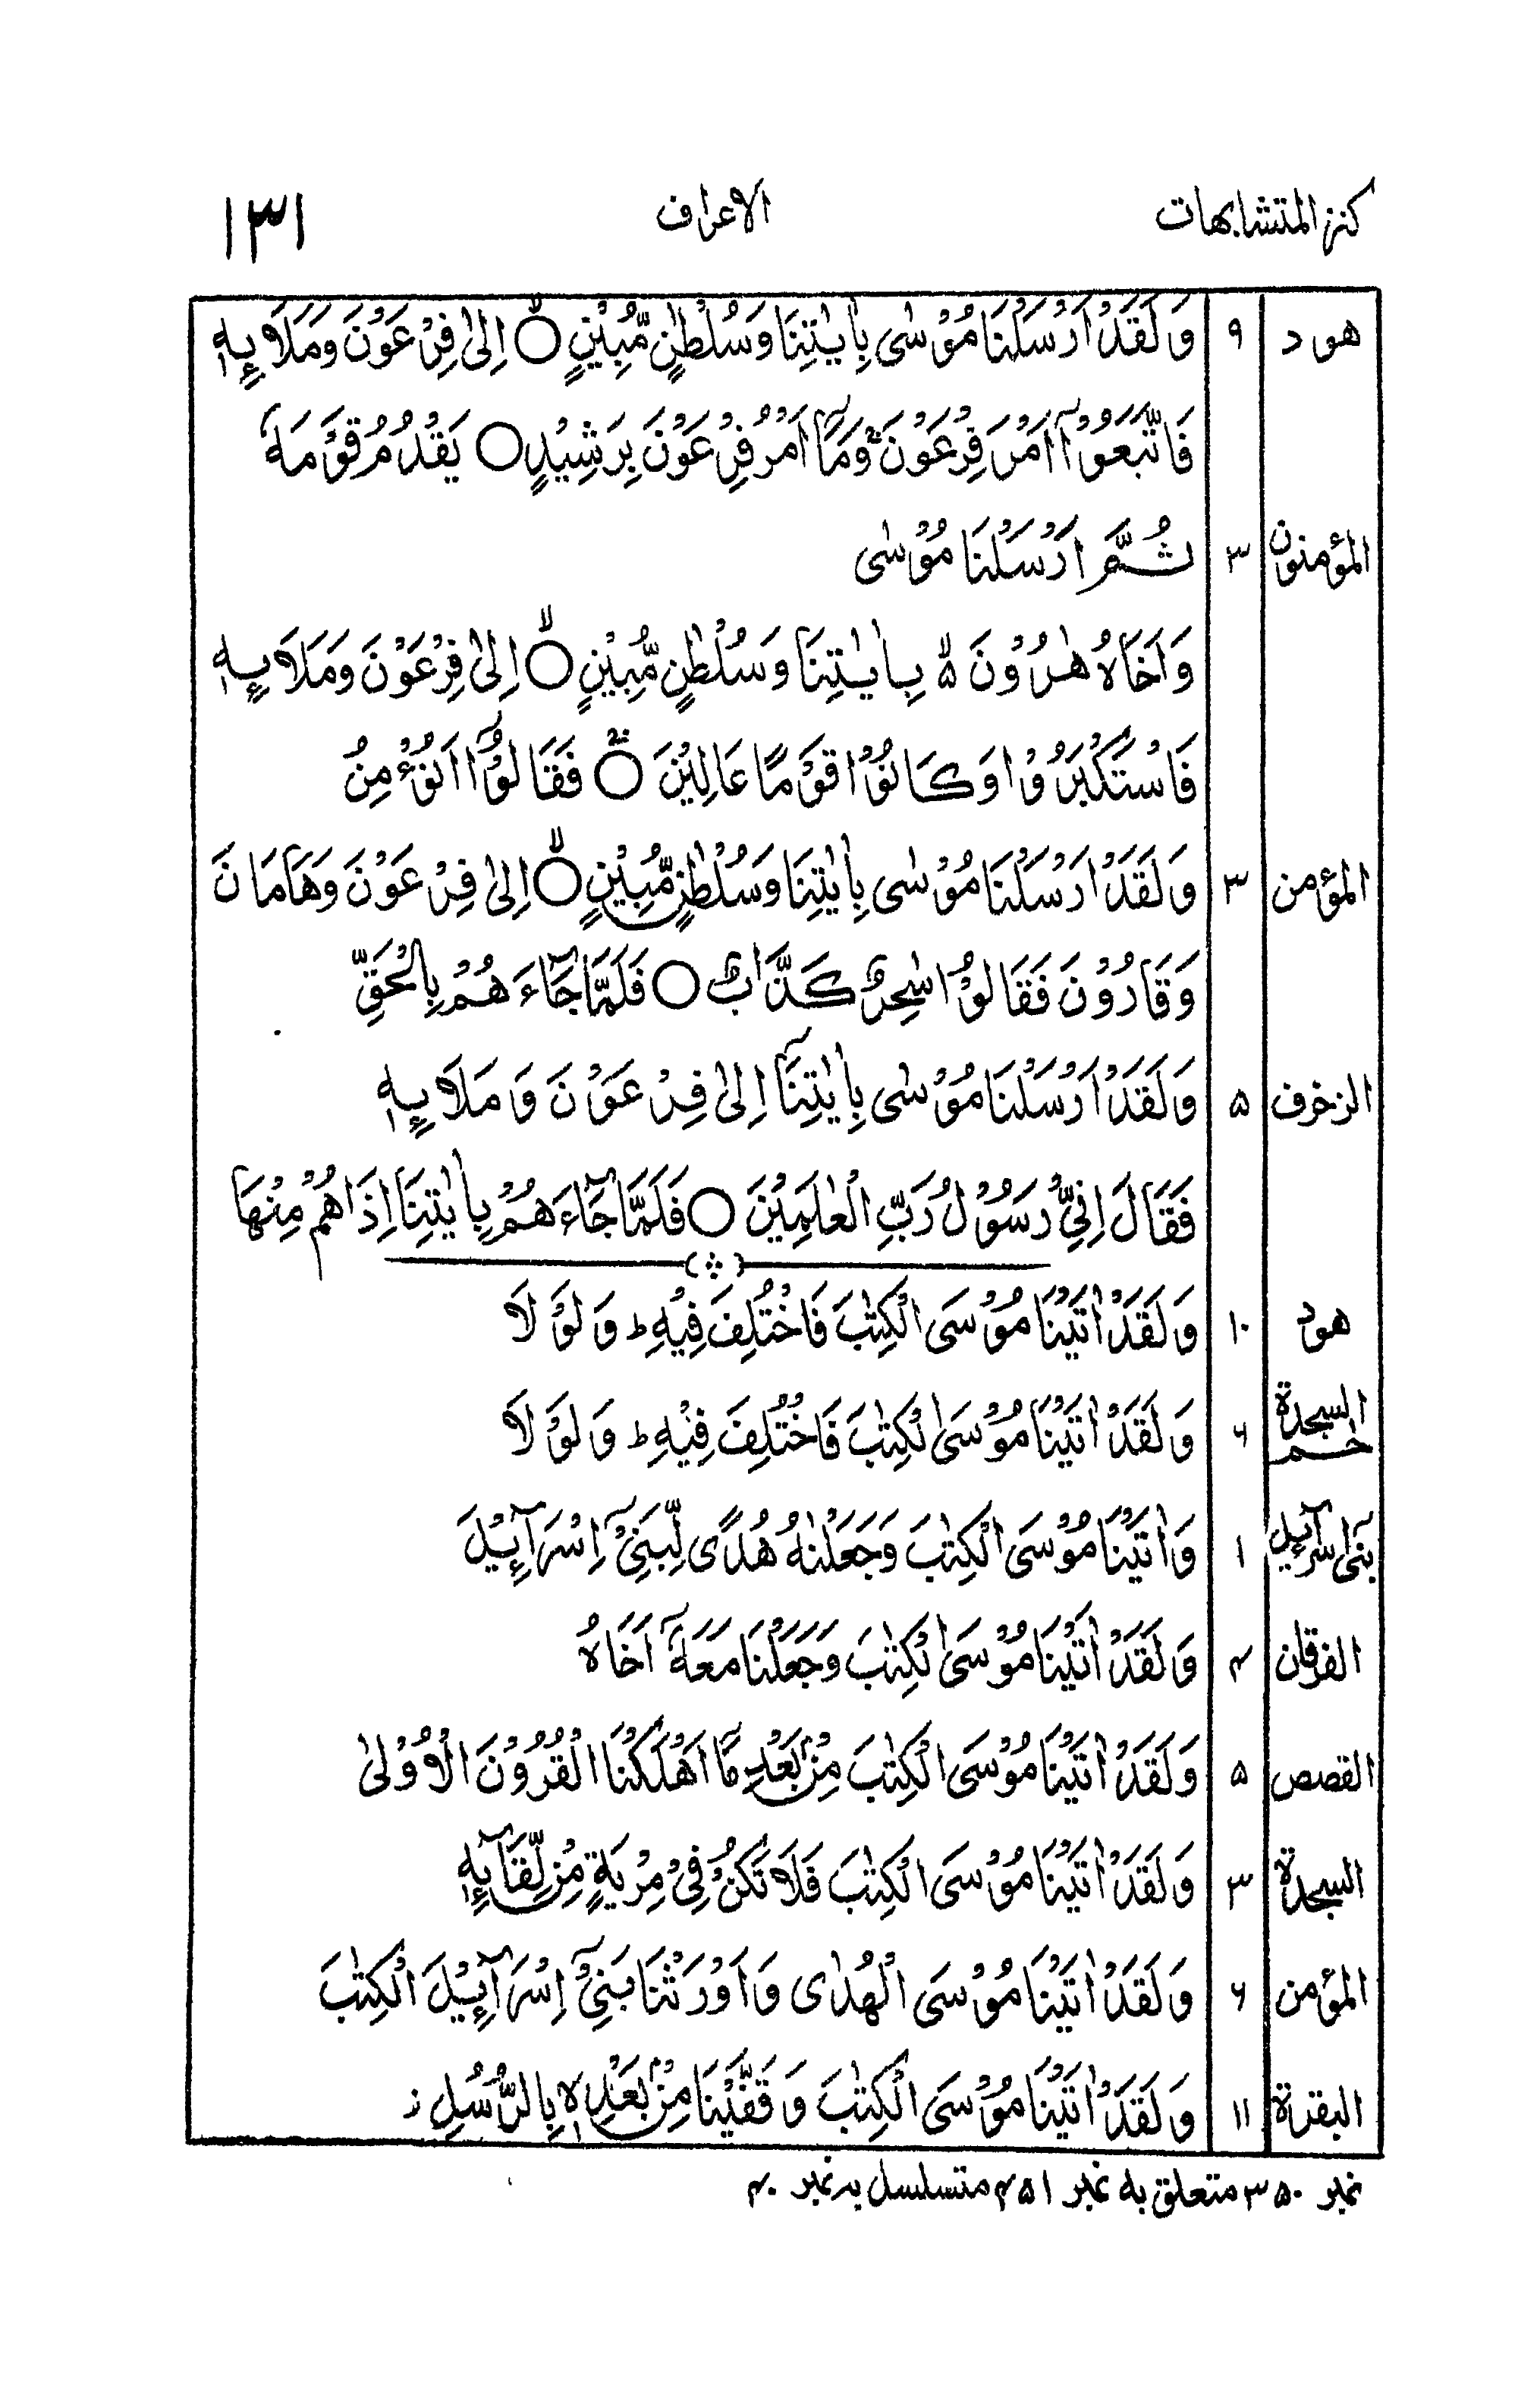 کنز المتشابہات الاعراف ۱۳۱
ھود ۹ وَلَقَدْ اَرْسَلْنَا مُوْسٰى بِاٰيٰتِنَا وَسُلْطٰنٍ مُّبِيْنٍ ۙ○ اِلٰى فِرْعَوْنَ وَمَلَا۟ىِٕهٖ
فَاتَّبَعُوْۤا اَمْرَ فِرْعَوْنَ ۚ وَمَاۤ اَمْرُ فِرْعَوْنَ بِرَشِيْدٍ ○ يَقْدُمُ قَوْمَهٗ
المؤمنون ۳ ثُمَّ اَرْسَلْنَا مُوْسٰى
وَاَخَاهُ هٰرُوْنَ ۙ۬ بِاٰيٰتِنَا وَسُلْطٰنٍ مُّبِيْنٍ ۙ○ اِلٰى فِرْعَوْنَ وَمَلَا۟ىِٕهٖ
فَاسْتَكْبَرُوْا وَكَانُوْا قَوْمًا عَالِيْنَ ۚ○ فَقَالُوْۤا اَنُؤْمِنُ
المؤمن ۳ وَلَقَدْ اَرْسَلْنَا مُوْسٰى بِاٰيٰتِنَا وَسُلْطٰنٍ مُّبِيْنٍ ۙ○ اِلٰى فِرْعَوْنَ وَهَامَانَ
وَقَارُوْنَ فَقَالُوْا سٰحِرٌ كَذَّابٌ ○ فَلَمَّا جَآءَهُمْ بِالْحَقِّ
الزخرف ۵ وَلَقَدْ اَرْسَلْنَا مُوْسٰى بِاٰيٰتِنَاۤ اِلٰى فِرْعَوْنَ وَمَلَا۟ىِٕهٖ
فَقَالَ اِنِّىْ رَسُوْلُ رَبِّ الْعٰلَمِيْنَ ○ فَلَمَّا جَآءَهُمْ بِاٰيٰتِنَا اِذَا هُمْ مِنْهَا
ھود ۱۰ وَلَقَدْ اٰتَيْنَا مُوْسَى الْكِتٰبَ فَاخْتُلِفَ فِيْهِ ؕ وَلَوْلَا
حٰم السجدۃ ۶ وَلَقَدْ اٰتَيْنَا مُوْسَى الْكِتٰبَ فَاخْتُلِفَ فِيْهِ ؕ وَلَوْلَا
بنی اسرآءیل ۱ وَاٰتَيْنَا مُوْسَى الْكِتٰبَ وَجَعَلْنٰهُ هُدًى لِّبَنِىْۤ اِسْرَآءِيْلَ
الفرقان ۴ وَلَقَدْ اٰتَيْنَا مُوْسَى الْكِتٰبَ وَجَعَلْنَا مَعَهٗۤ اَخَاهُ
القصص ۵ وَلَقَدْ اٰتَيْنَا مُوْسَى الْكِتٰبَ مِنْۢ بَعْدِ مَاۤ اَهْلَكْنَا الْقُرُوْنَ الْاُوْلٰى
السجدۃ ۳ وَلَقَدْ اٰتَيْنَا مُوْسَى الْكِتٰبَ فَلَا تَكُنْ فِىْ مِرْيَةٍ مِّنْ لِّقَآىِٕهٖ
المؤمن ۶ وَلَقَدْ اٰتَيْنَا مُوْسَى الْهُدٰى وَاَوْرَثْنَا بَنِىْۤ اِسْرَآءِيْلَ الْكِتٰبَ
البقرۃ ۱۱ وَلَقَدْ اٰتَيْنَا مُوْسَى الْكِتٰبَ وَقَفَّيْنَا مِنْۢ بَعْدِهٖ بِالرُّسُلِ ز
نمبر ۳۵۰ متعلق بہ نمبر ۴۵۱ متسلسل بہ نمبر ۴۰